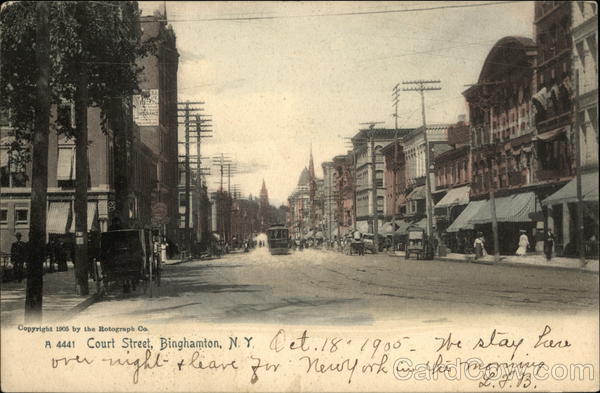 Copyright 1905 by the Rotograph Co.
A 4441 Court Street, Binghamton, N.Y. Oct. 18-1905- We stay here
over night & leave for New York in the morning
CardCow.com